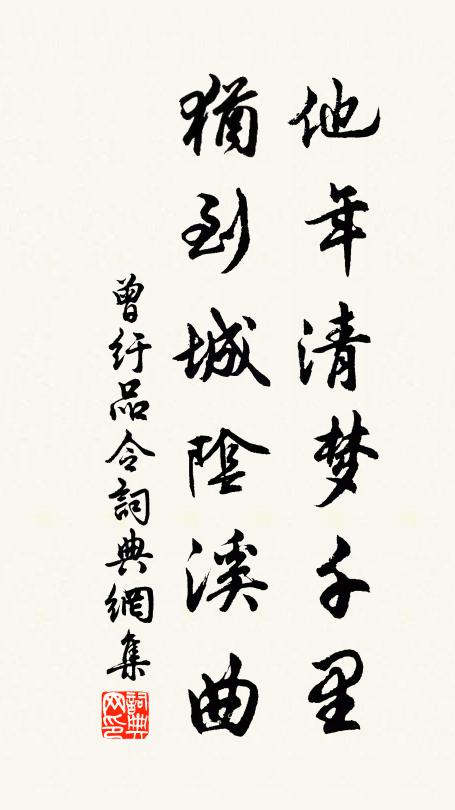 他年清梦千里
猶到城陰溪曲
曾紆品令詞典網集
詞典网印